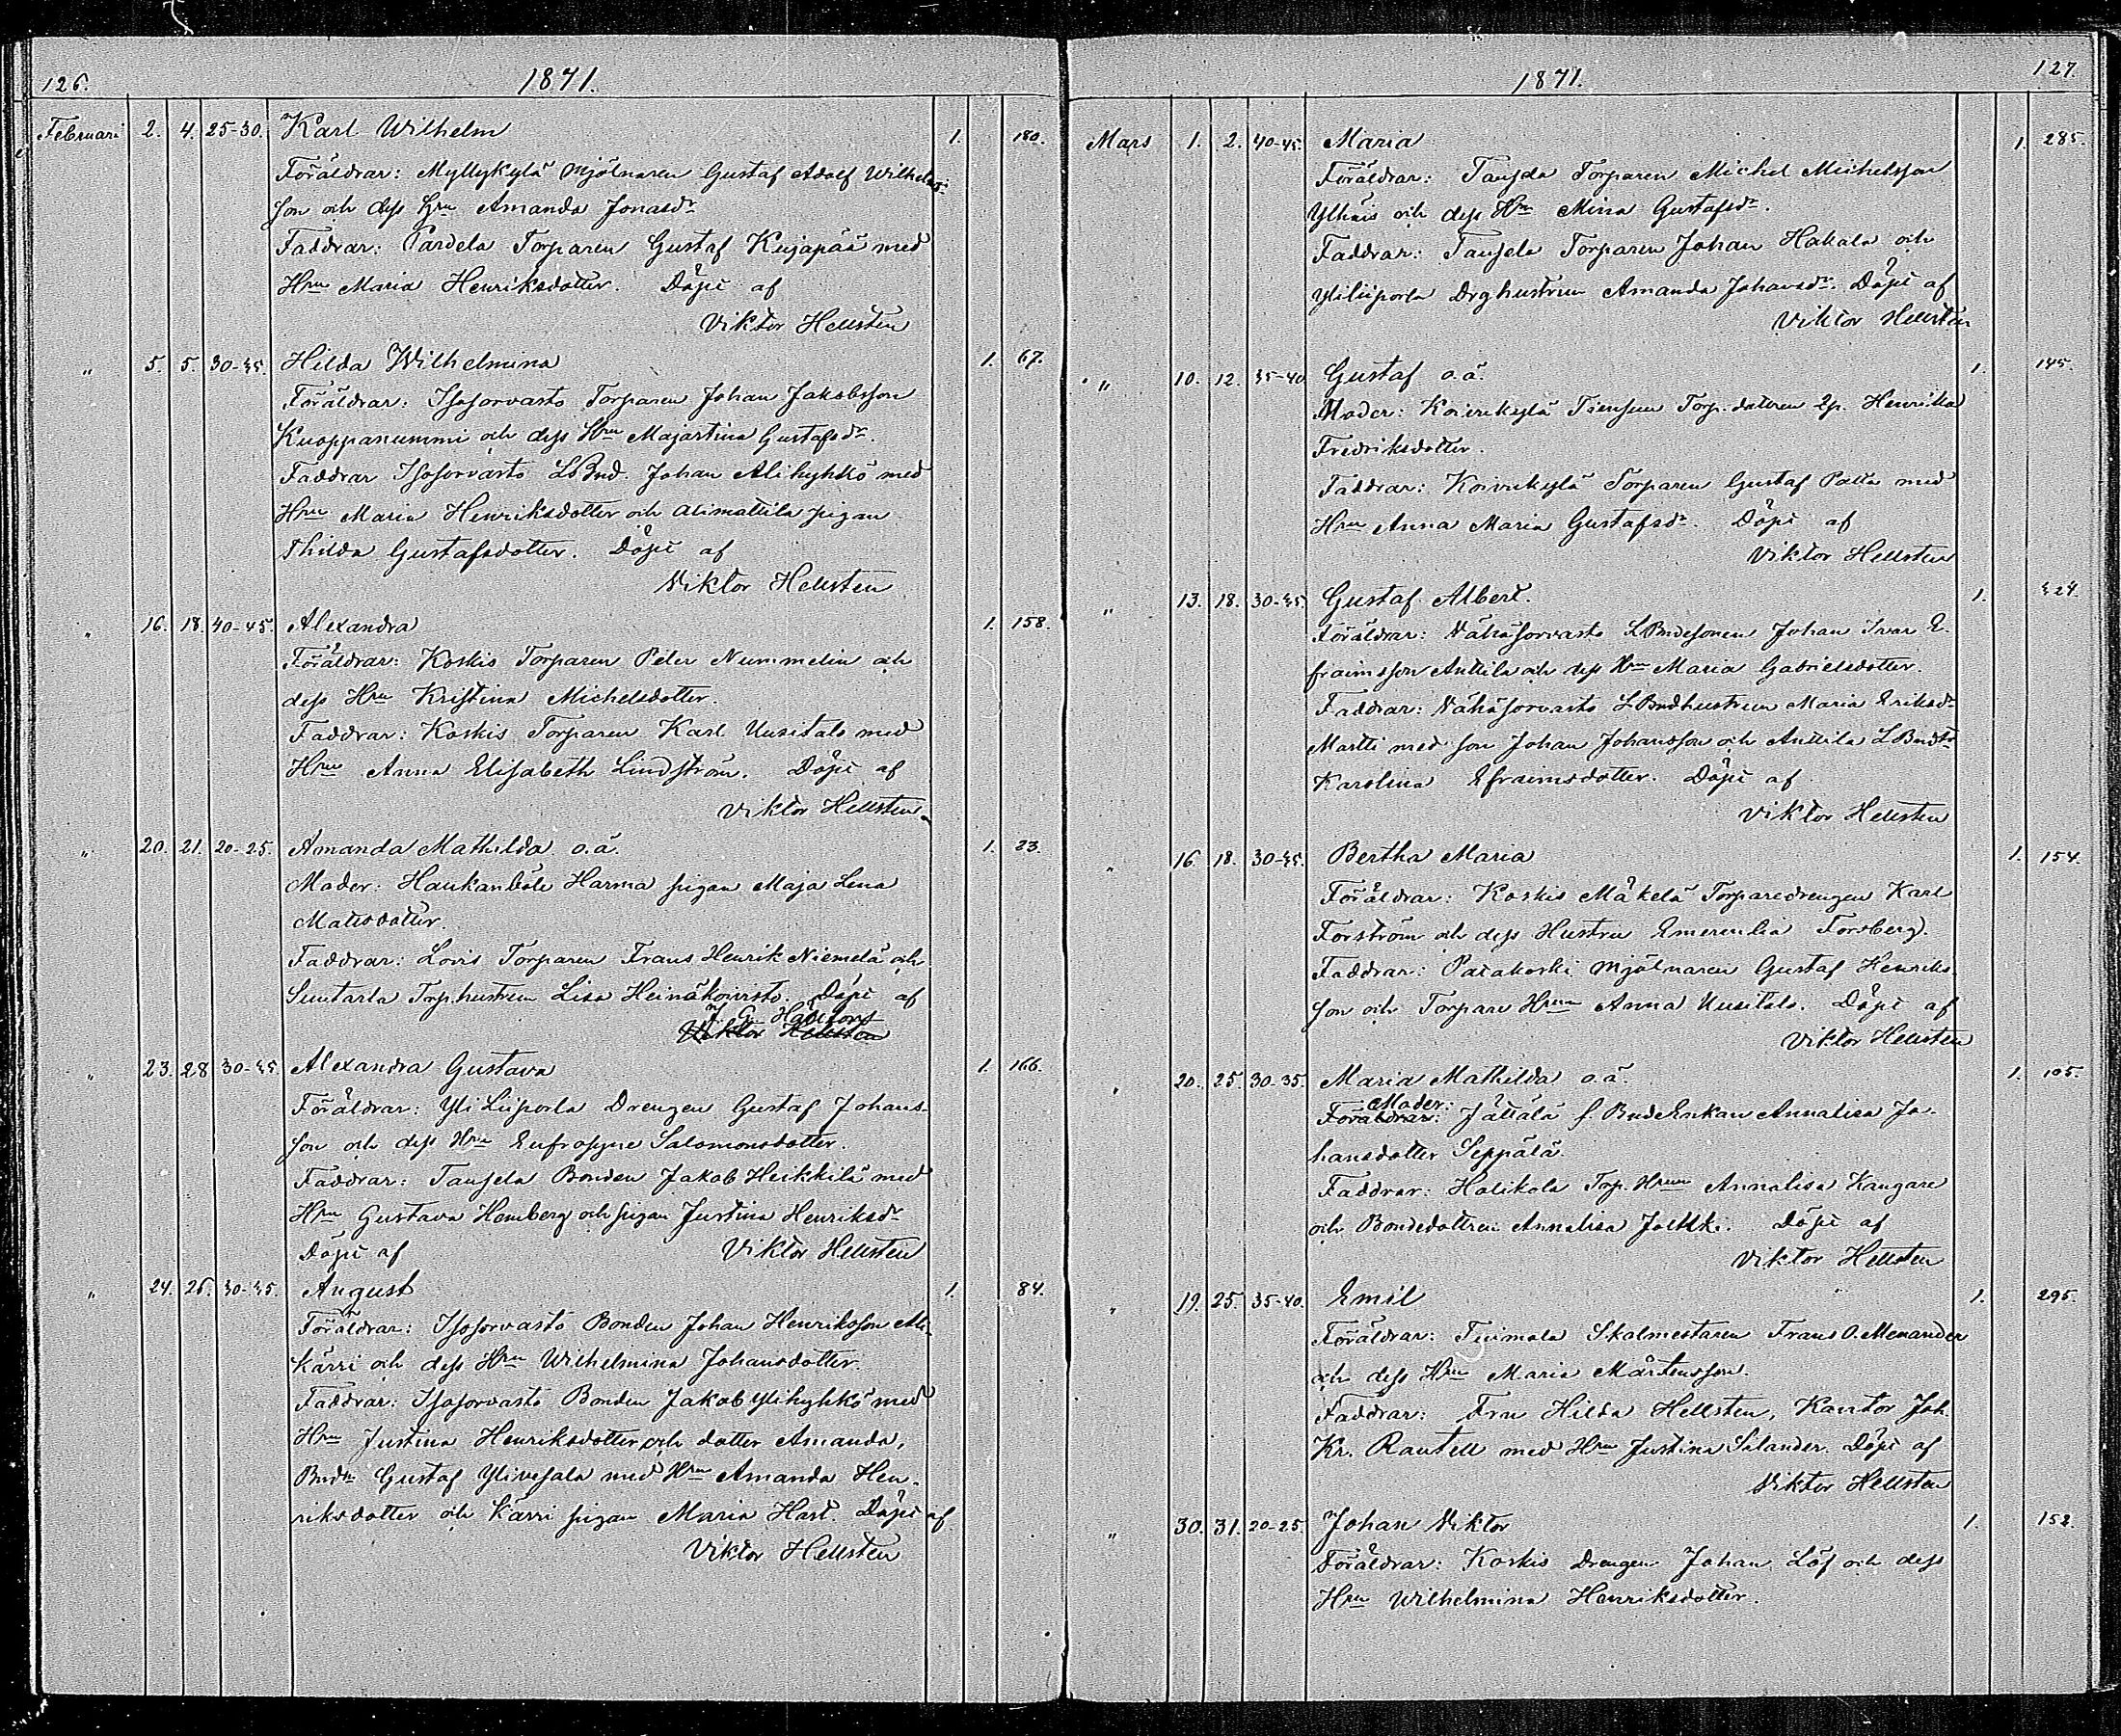 126.
1871.
Februari 2. 4. 25-30. Karl Wilhelm 1. 180.
Föräldrar: Myllykylä Mjölnaren Gustaf Adolf Wilhelms-
son och dess Hru Amanda Jonasdr
Faddrar: Pardela Torparen Gustaf Kujapää med
Hru Maria Henriksdotter. Döpt af
Viktor Hellsten
" 5. 5. 30-35. Hilda Wilhelmina 1. 67.
Föräldrar: Isosorvasto Torparen Johan Jakobsson
Kuoppanummi och dess Hru Majastina Gustafsdr.
Faddrar Isosorvasto LBnd. Johan Alihyhkö med
Hru Maria Henriksdotter och Alimattila pigan
Thilda Gustafsdotter. Döpt af
Viktor Hellsten
" 16. 18. 40-45. Alexandra 1. 158.
Föräldrar: Koskis Torparen Peter Nummelin och
dess Hru Kristina Michelsdotter.
Faddrar: Koskis Torparen Karl Uusitalo med
Hru Anna Elisabeth Lindström. Döpt af
Viktor Hellsten
" 20. 21. 20-25. Amanda Mathilda o.ä. 1. 23.
Moder: Haukanböle Harma pigan Maja Lena
Matsdotter.
Faddrar: Lovis Torparen Frans Henrik Niemelä och
Suutarla Torphustrun Lisa Heinäkoivisto. Döpt af
J. G. Hallfors
Viktor Hellsten
" 23. 28 30-35 Alexandra Gustava 1. 166.
Föräldrar: Yli Liiporla Drengen Gustaf Johans-
son och dess Hru Eufrosyne Salomonsdotter.
Faddrar: Taussela Bonden Jakob Heikkilä med
Hru Gustava Hemberg och pigan Justina Henriksdr
Döpt af Viktor Hellsten
" 24. 26. 30-35. August 1. 84.
Föräldrar: Isosorvasto Bonden Johan Henriksson Ali-
kärri och dess Hru Wilhelmina Johansdotter
Faddrar: Isosorvasto Bonden Jakob Ylihyhkö med
Hru Justina Henriksdotter och dotter Amanda,
Bndn Gustaf Ylivesala med Hru Amanda Hen-
riksdotter och Kärri pigan Maria Hast. Döpt af
Viktor Hellsten
1871.
127.
Mars 1. 2. 40-45. Maria 1. 285.
Föräldrar: Taussela Torparen Michel Michelsson
Ylhäis och dess Hru Mina Gustafsdr.
Faddrar: Taussela Torparen Johan Hakala och
Yliliiporla Drghustrun Amanda Johansdr. Döpt af
Viktor Hellsten
" 10. 12. 35-40 Gustaf o.ä. 1. 145.
Moder: Koivukylä Torp.dottren Henrika
Fredriksdotter.
Faddrar: Koivukylä Torparen Gustaf Patta med
Hru Anna Maria Gustafsdr. Döpt af
Viktor Hellsten
" 13. 18. 30-35. Gustaf Albert. 1. 324.
Föräldrar: Vähäsorvasto LBndesonen Johan Ivar E-
fraimsson Anttila och dess Hru Maria Gabrielsdotter.
Faddrar: Vähäsorvasto LBndhustrun Maria Eriksdr
Martti med son Johan Johansson och Anttila LBndtr
Karolina Efraimsdotter. Döpt af
Viktor Hellsten
" 16 18. 30-35. Bertha Maria 1. 154.
Föräldrar: Koskis Mäkelä Torparedrengen Karl
Forström och dess Hustru Emerentia Forsberg.
Faddrar: Patakoski Mjölnaren Gustaf Henriks
son och Torpare Hrun Anna Uusitalo. Döpt af
Viktor Hellsten
" 20. 25. 30-35. Maria Mathilda o.ä. 1. 105.
Moder:
Föräldrar: Jättälä f. BndeEnkan Annalisa Jo-
hansdotter Seppälä.
Faddrar: Halikola Torp. Hrun Annalisa Kangare
och Bondedottren Annalisa Jvettki. Döpt af
Viktor Hellsten
" 19. 25. 35-40. Emil 1. 295.
Föräldrar: Tuimala Skolmestaren Frans O. Menander
och dess Hru Maria Mårtensson.
Faddrar: Fru Hilda Hellsten, Kantor Joh.
Kr. Rautell med Hru Justina Salander. Döpt af
Viktor Hellsten
" 30. 31. 20-25. Johan Viktor 1. 152.
Föräldrar: Koskis Drengen Johan Löf och dess
Hru Wilhelmina Henriksdotter.